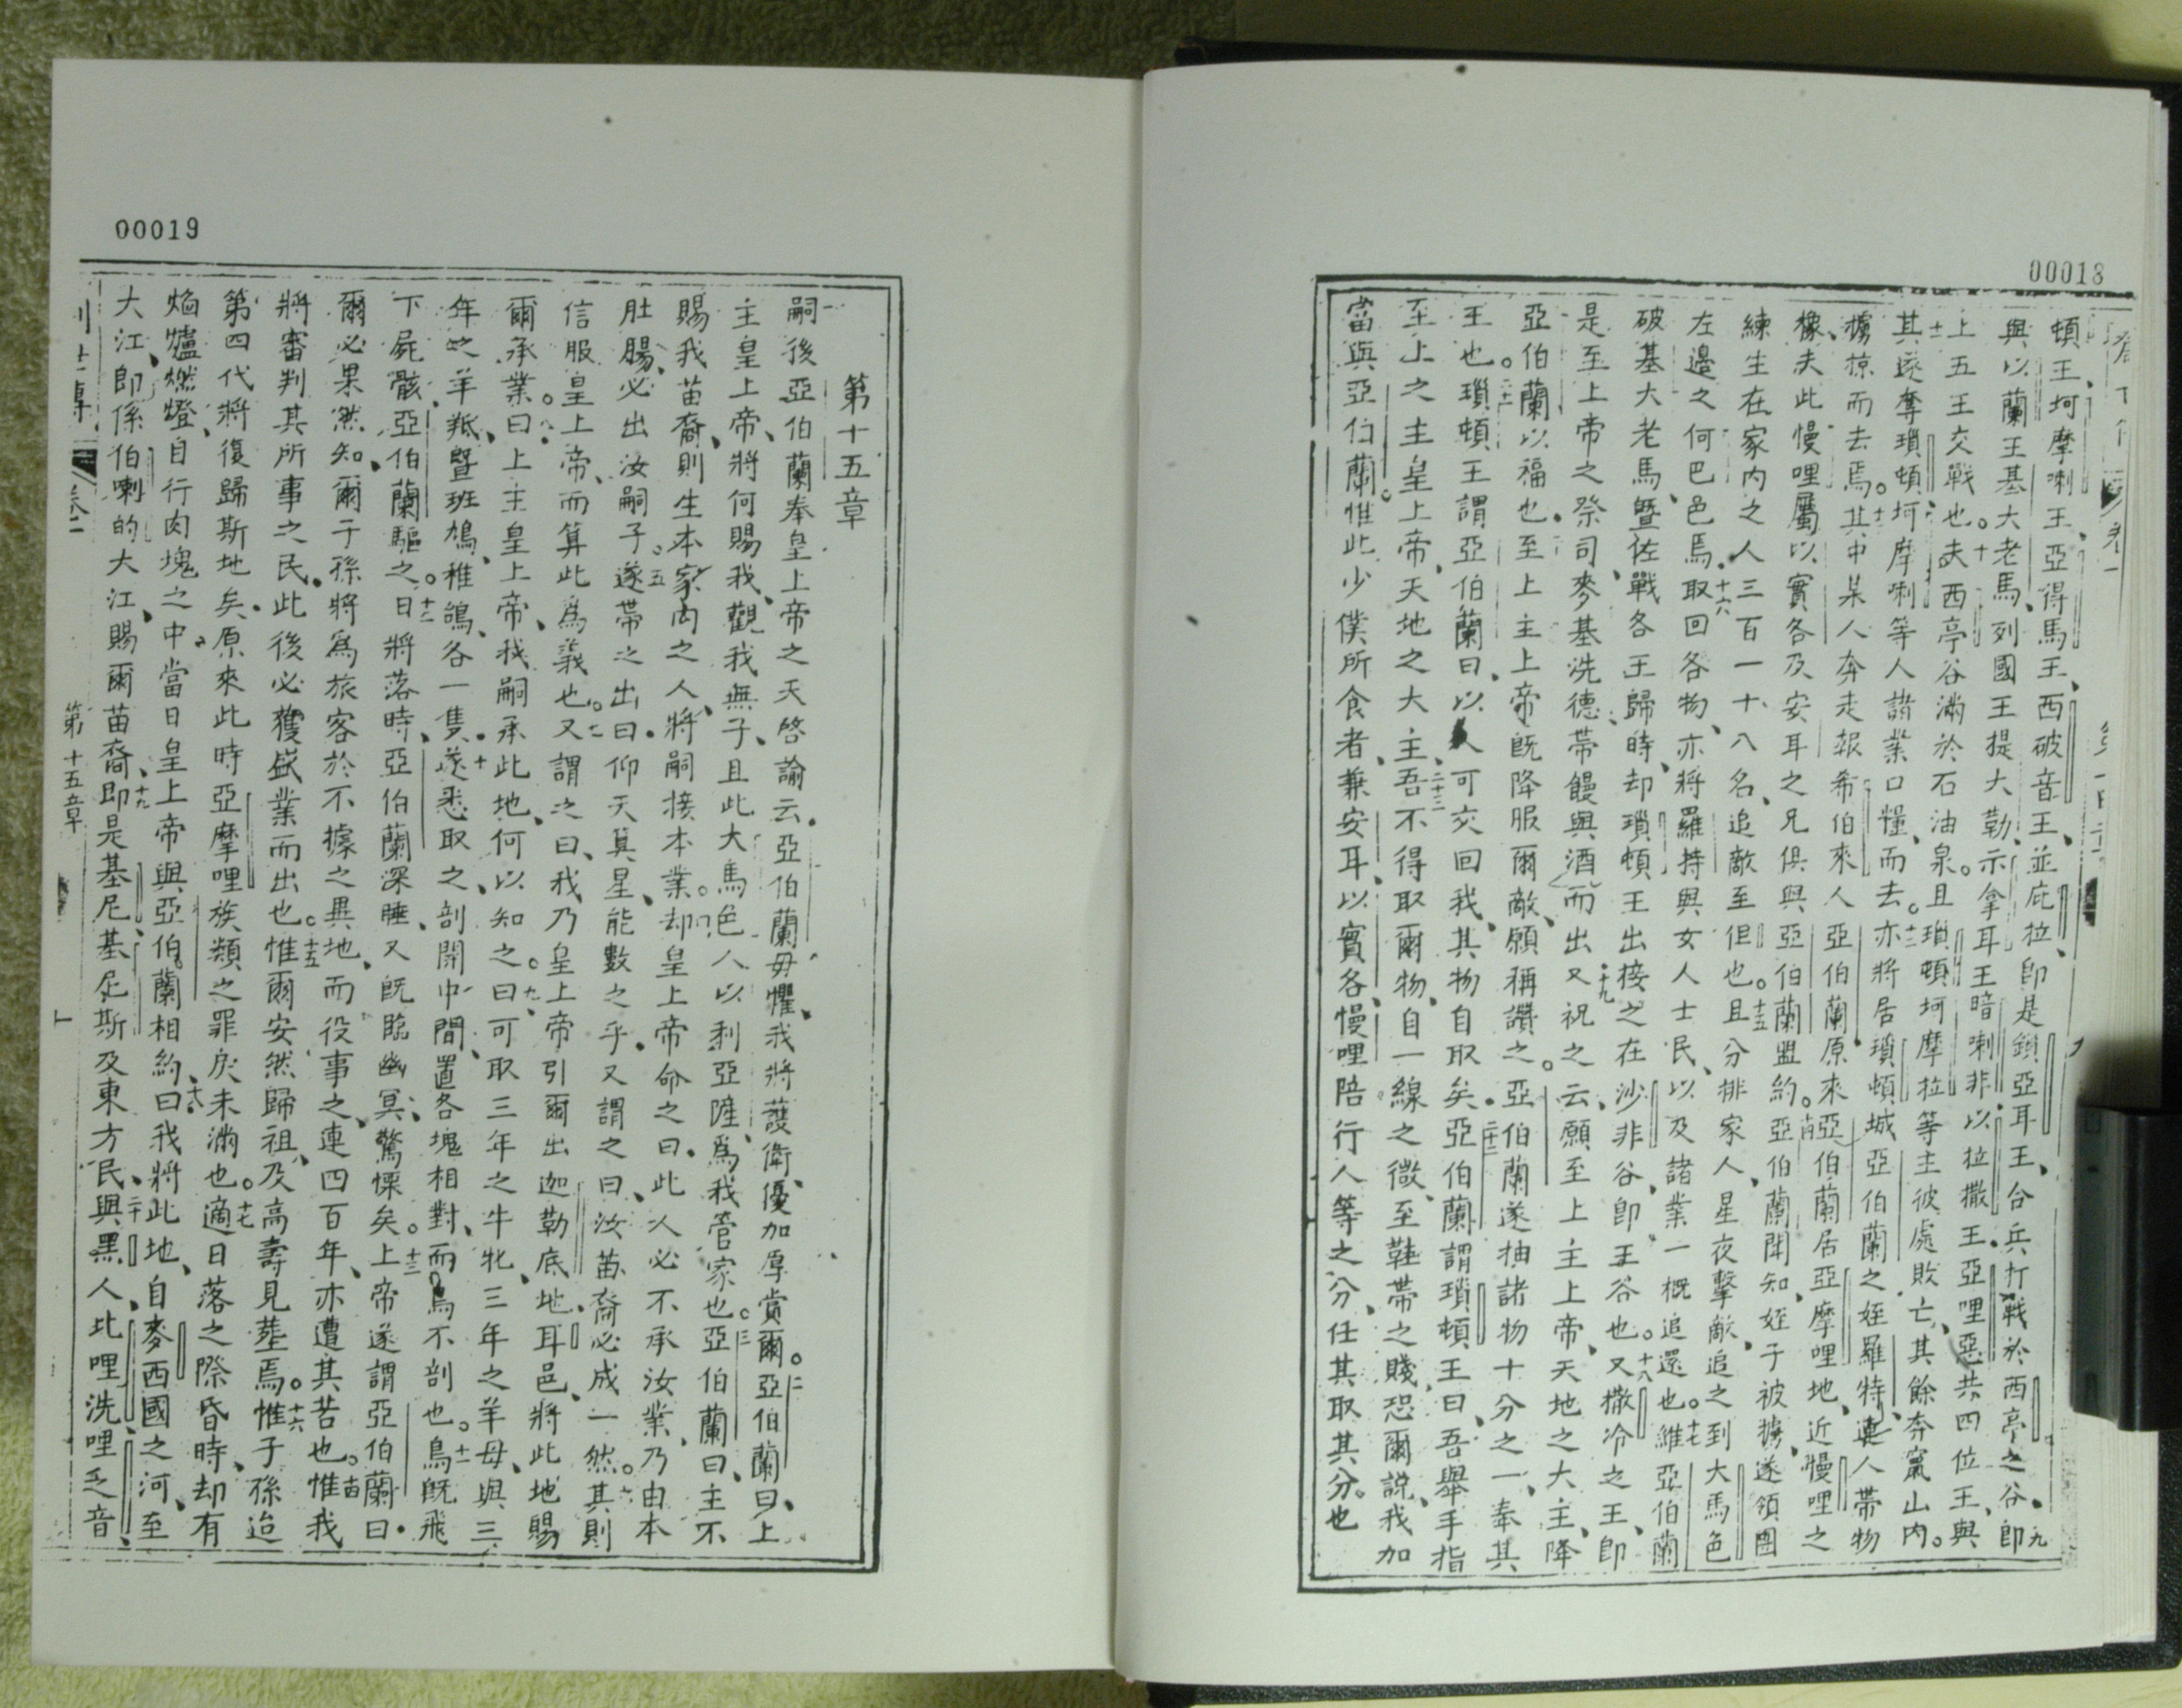 00018
頓王、坷摩喇王、亞得馬王、西破音王、並庇拉、即是鎖亞耳王、合兵打戰於西亭之谷、九即
與以蘭王基大老馬、列國王提大勒、示拿耳王暗喇非、以拉撒王亞哩惡、共四位王、與
上五王交戰也。十夫西亭谷滿於石油泉。且瑣頓坷摩拉等主彼處敗亡、其餘奔竄山內。
十一其遂奪瑣頓坷摩喇等人諸業口糧、而去。十二亦將居瑣頓城亞伯蘭之姪羅特、連人帶物
擄掠而去焉。十三其中某人奔走報希伯來人亞伯蘭、原來亞伯蘭居亞摩哩地、近慢哩之
橡、夫此慢哩屬以實各及安耳之兄俱與亞伯蘭盟約。十四亞伯蘭聞知、姪子被擄、遂領團
練生在家內之人三百一十八名、追敵至但也。十五且分排家人、星夜擊敵、追之到大馬色
左邊之何巴邑焉。十六取回各物、亦將羅特與女人士民、以及諸業一概追還也。十七維亞伯蘭
破基大老馬、暨佐戰各王歸時、却瑣頓王出接之在沙非谷、即王谷也。十八又撒冷之王、即
是至上帝之祭司麥基洗德、帶饅與酒而出、十九又祝之云、願至上主上帝、天地之大主、降
亞伯蘭以福也。二十至上主上帝既降服爾敵、願稱讚之。亞伯蘭遂抽諸物十分之一、奉其
王也。二十一瑣頓王謂亞伯蘭曰、以人可交回我、其物自取矣。二十二亞伯蘭謂瑣頓王曰、吾舉手指
至上之主皇上帝、天地之大主、二十三吾不得取爾物、自一線之微、至鞋帶之賤、恐爾說、我加
當與亞伯蘭。惟此少僕所食者、兼安耳、以實各、慢哩陪行人等之分、任其取其分也
00019
第十五章
一嗣後亞伯蘭奉皇上帝之天啓諭云、亞伯蘭毋懼、我將護衛、優加厚賞爾。二亞伯蘭曰、上
主皇上帝、將何賜我、觀我無子、且此大馬色人以利亞隡、爲我管家也。三亞伯蘭曰、主不
賜我苗裔、則生本家內之人、將嗣接本業。四却皇上帝命之曰、此人必不承汝業、乃由本
肚腸、必出汝嗣子。五遂帶之出曰、仰天算星、能數之乎、又謂之曰、汝苗裔必成一然。六其則
信服皇上帝、而算此爲義也。七又謂之曰、我乃皇上帝引爾出迦勒底地、耳邑、將此地賜
爾承業。八曰、上主皇上帝、我嗣承此地、何以知之。九曰、可取三年之牛牝、三年之羊母、與三
年之羊羝、暨班鳩、稚鴿、各一隻、十遂悉取之、剖開中間、置各塊相對、而鳥不剖也。十一鳥既飛
下屍骸、亞伯蘭驅之。十二日將落時、亞伯蘭深睡、又既臨幽冥、驚慄矣。十三上帝遂謂亞伯蘭曰、
爾必果然知、爾子孫將爲旅客於不據之異地、而役事之、連四百年、亦遭其苦也。十四惟我
將審判其所事之民、此後必獲盛業而出也。十五惟爾安然歸祖、及高壽見葬焉。十六惟子孫迨
第四代將復歸斯地矣、原來此時亞摩哩族類之罪戾未滿也。十七適日落之際昏時、却有
焰爐燃燈、自行肉塊之中、十八當日皇上帝與亞伯蘭相約、曰我將此地、自麥西國之河、至
大江、即係伯喇的大江、賜爾苗裔、十九即是基尼、基尼斯及東方民、二十與黑人、比哩洗哩乏音、
卷一
第十五章